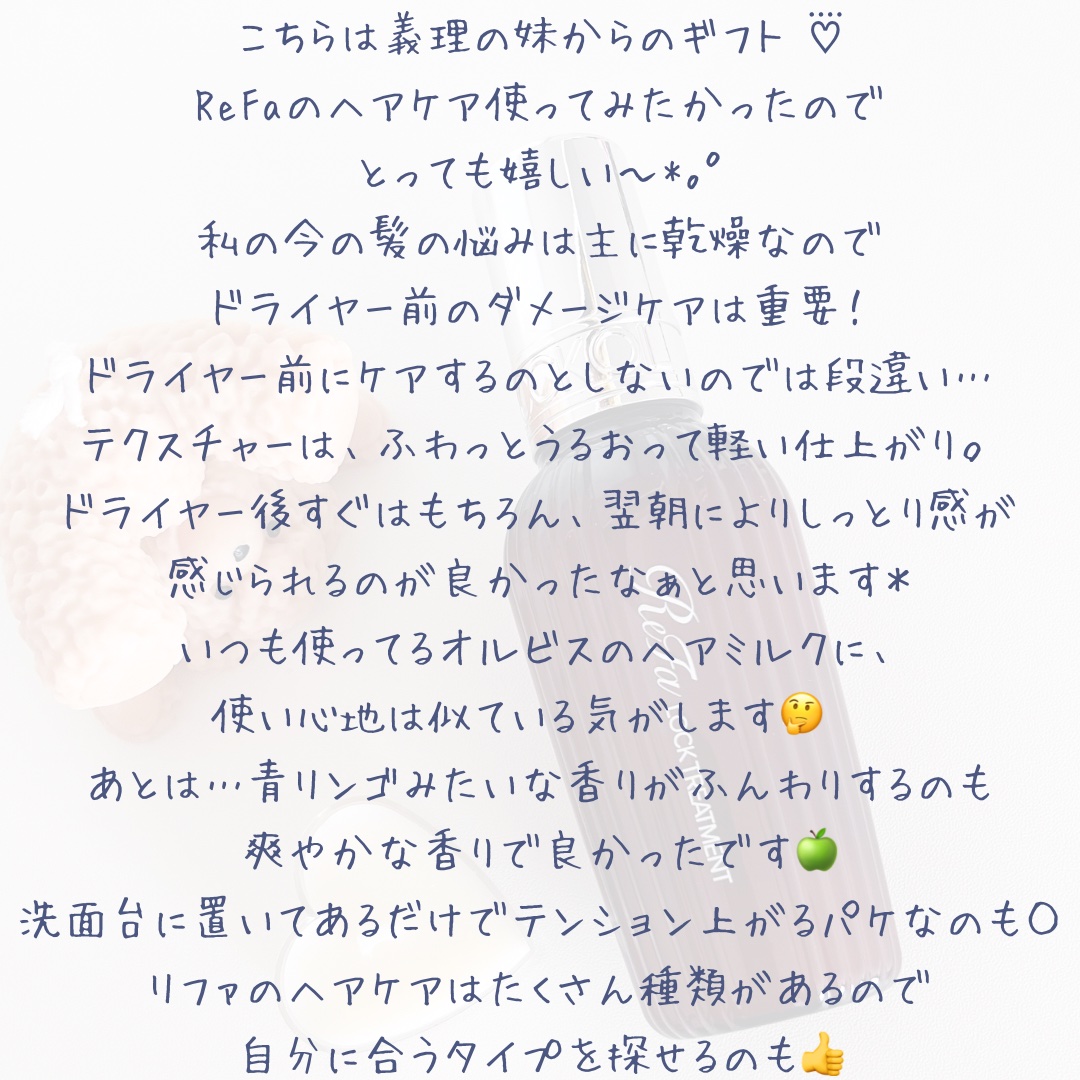 こちらは義理の妹からのギフト ♡
ReFaのヘアケア使ってみたかったので
とっても嬉しい〜*｡°
私の今の髪の悩みは主に乾燥なので
ドライヤー前のダメージケアは重要！
ドライヤー前にケアするのとしないのでは段違い…
テクスチャーは、ふわっとうるおって軽い仕上がり。
ドライヤー後すぐはもちろん、翌朝によりしっとり感が
感じられるのが良かったなぁと思います*
いつも使ってるオルビスのヘアミルクに、
使い心地は似ている気がします🤔
あとは…青リンゴみたいな香りがふんわりするのも
爽やかな香りで良かったです🍏
洗面台に置いてあるだけでテンション上がるパケなのも○
リファのヘアケアはたくさん種類があるので
自分に合うタイプを探せるのも👍
ReFa
LOCK TREATMENT